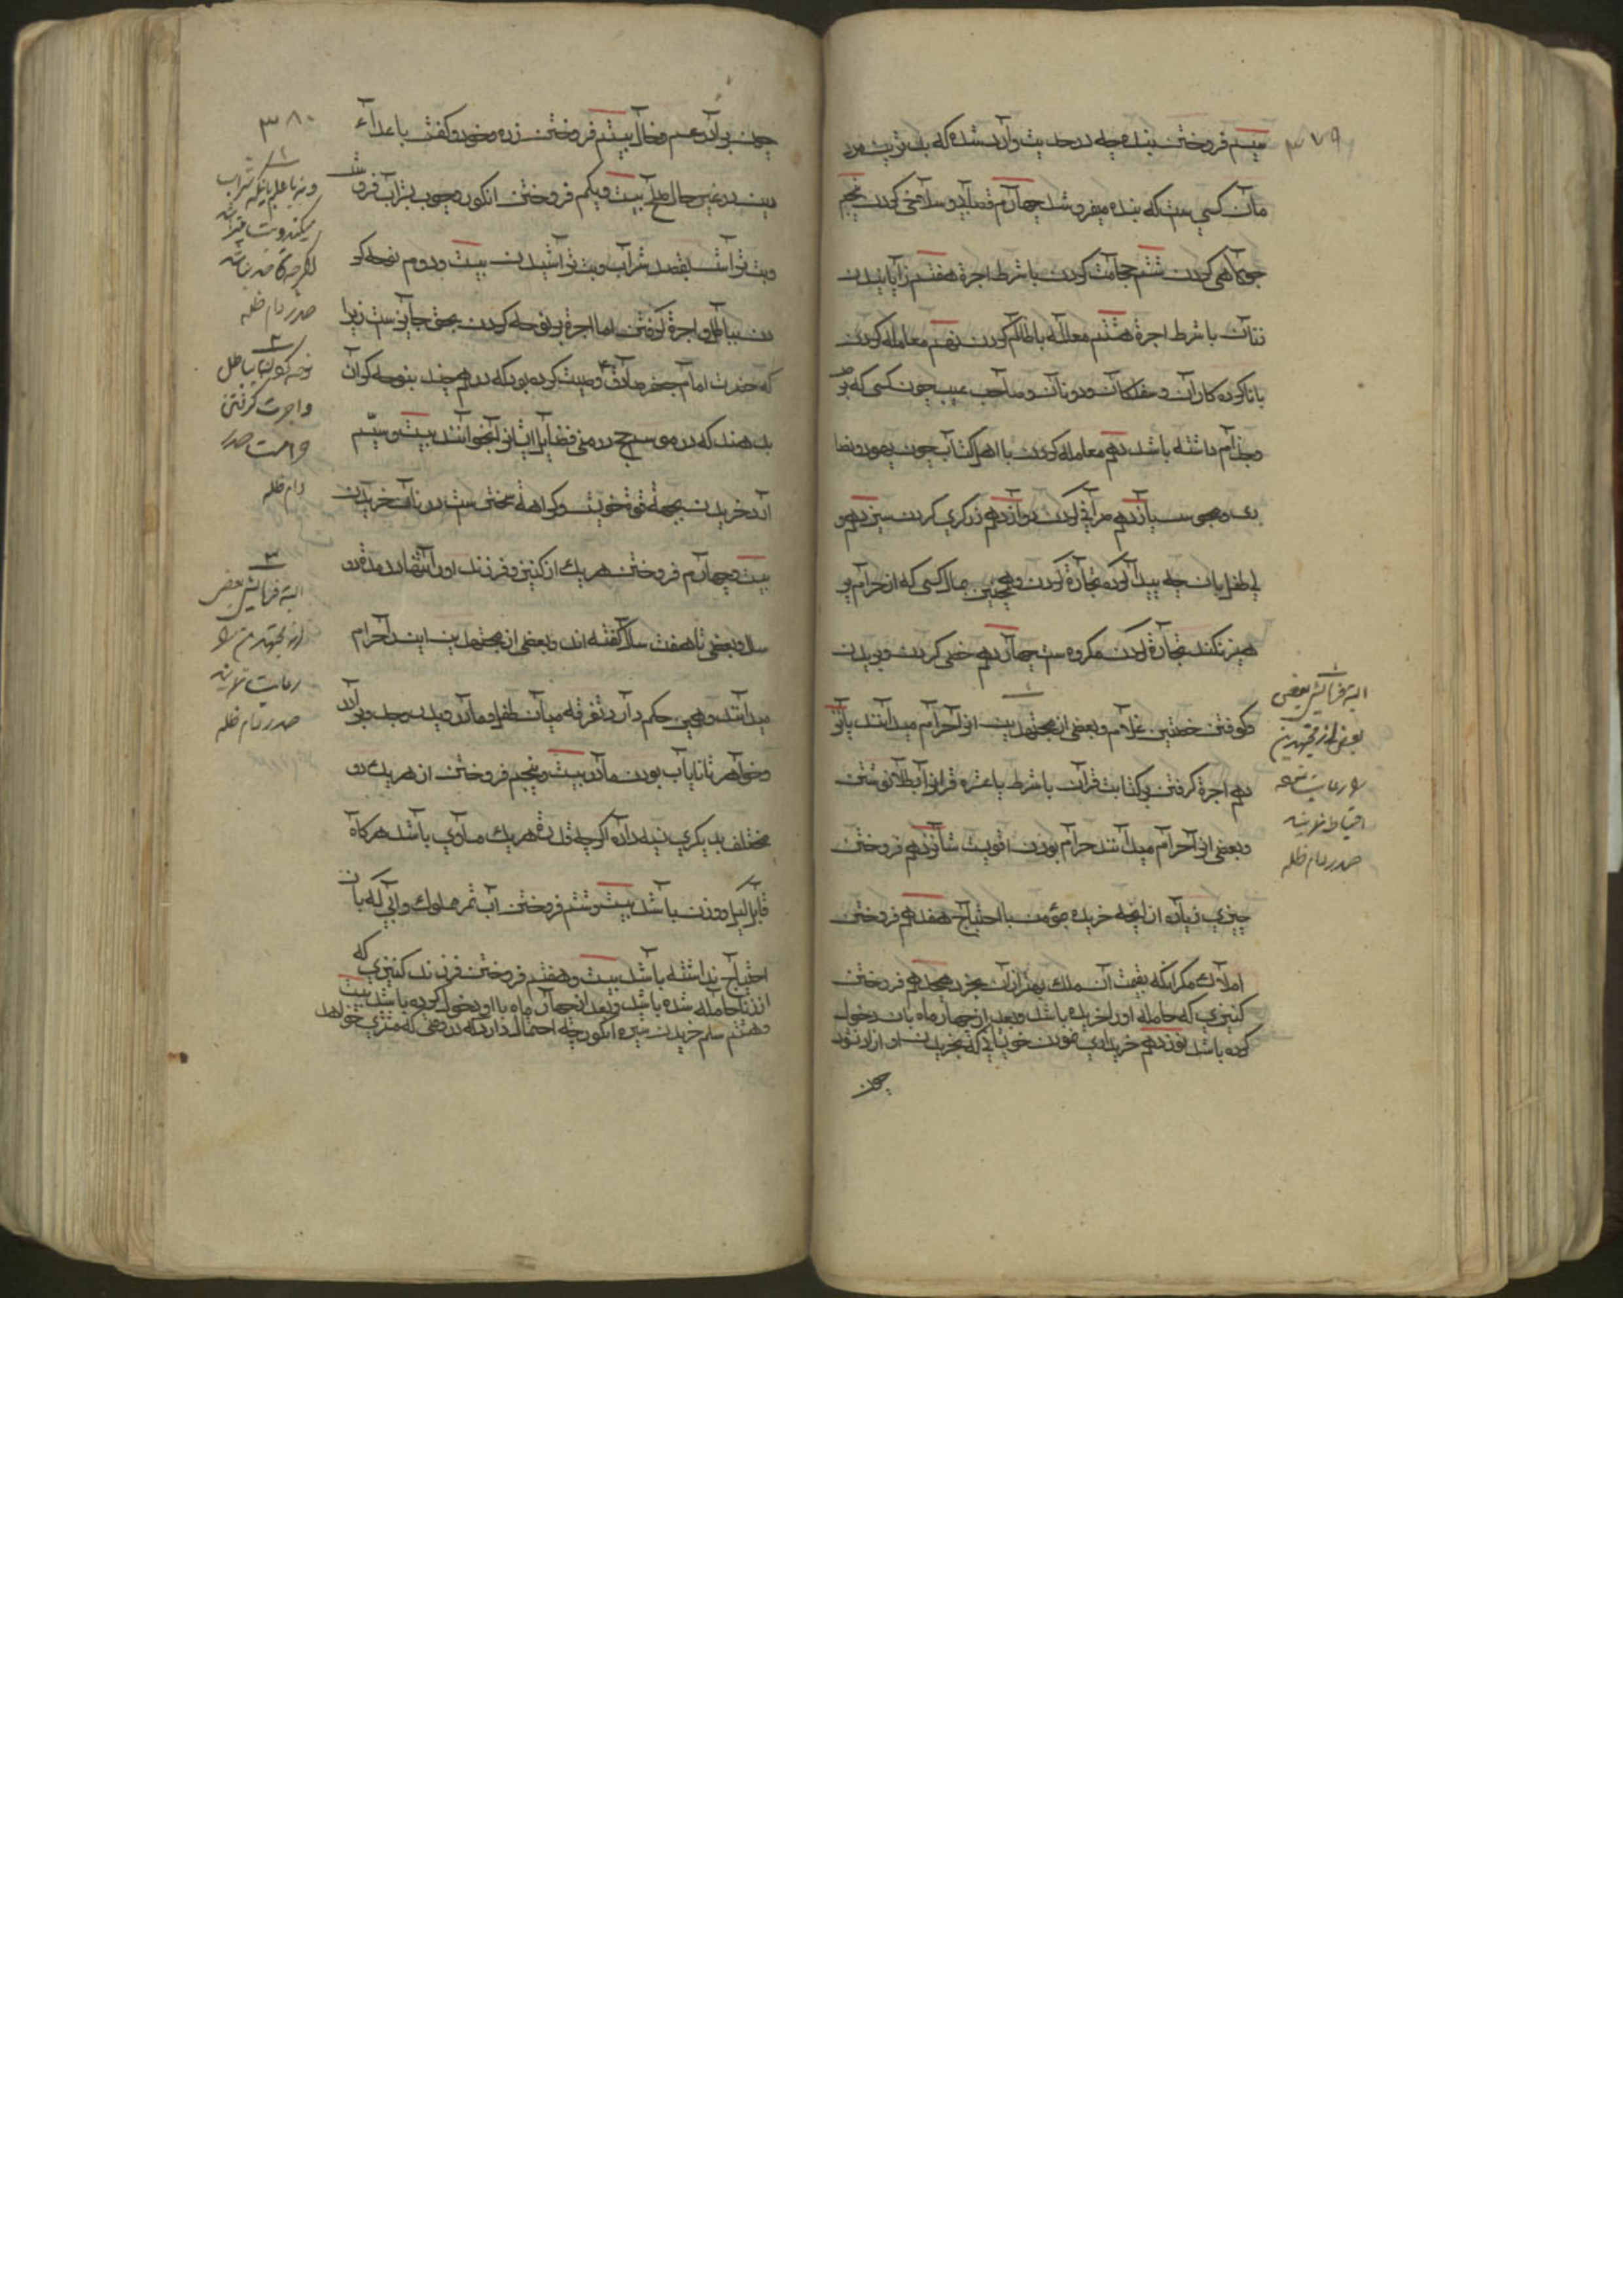 ۳۷۹
سیم فروختن بنده چه در حدیث وارد شده که بدترین مرد
مان کسی ست که بنده میفروشد چهارم قصابی و سلاخی کردن پنجم
جولاهی کردن ششم حجامت کردن با شرط اجرة هفتم زایانیدن
زنان با شرط اجرة هشتم معامله با ظالم کردن نهم معامله کردن
با ناکرده کاران و سفلکان و دونان و صاحب عیب چون کسی که برص
و جذام داشته باشد دهم معامله کردن با اهل کتاب چون یهود و نصا
ری و مجوس یازدهم صرافی کردن دوازدهم زرگری کردن سیزدهم
بی طفل بان چه پیدا کرده تجارة کردن و همچنین بمال کسی که از حرام پر
هیز نکند تجارة کردن مکروه ست چهاردهم خصی کردن و بریدن
و کوفتن خصیتین غلام و بعضی از مجتهدین انرا حرام میدانند پانز
دهم اجرة گرفتن بر کتابت قرآن با شرط یا عشره قرانرا بطلا نوشتن
و بعضی انرا حرام میدانند حرام بودن اقویست شانزدهم فروختن
چیزی زیاده از انچه خریده بمؤمن با احتیاج هفدهم فروختن
املاک مکر انکه بقیمت آن ملک بهتر از آن بخرد هجدهم فروختن
کنیزی که حامله اورا خریده باشد و بعد از چهار ماه بان دخول
کرده باشد نوزدهم خریداری نمودن خویشانی که بخریدن او آزاد نشود
چون
۱
البته فرمایش بعضی
بعض از مجتهدین
را رعایت
احتیاط نمایند
صدر دام ظله
۳۸۰
چون برادر و عم و خال بیستم فروختن زره و خود و کفش باعداء
دین در غیر حال صلح بیست و یکم فروختن انکور و چوب بشراب فروش
و بت تراش بقصد شراب و بت تراشیدن بیست و دوم نوحه کر
دن بباطل و اجرة گرفتن اما اجرة بر نوحه کردن بحق جایز ست زیرا
که حضرت امام جعفر صادق ع وصیت کرده بود که درهم چند بنوحه کران
بدهند که در موسم حج در منی فضایل ایشانرا بخوانند بیست و سیم
آرد خریدن بجهة قوة خویش و کراهة سختی ست در نان خریدن
بیست و چهارم فروختن هر یک از کنیز و فرزند او در انقضاء مدة دو
سال و بعضی تا هفت سال کفته اند و بعضی از مجتهدین اینرا حرام
میدانند و همین حکم دارد تفرقه میان طفل و مادر و پدر و جد و برادر
و خواهر تا نایاب بودن مادر بیست و پنجم فروختن از هر یک دو
مختلف بدیکری نسیه دادن اکرچه قدر هر یک مساوی باشد هرکاه
قابل کیل و وزن باشد بیست و ششم فروختن آب نهر مملوک و آبی که بان
احتیاج نداشته باشد بیست و هفتم فروختن فرزند کنیزی که
از زنا حامله شده باشد و بعد از چهار ماه با او دخول کرده باشد بیست
و هشتم سلم خریدن شیره انکور چه احتمال دارد که در وقتی که مشتری خواهد
۱
و نیز با علم باینکه شراب
میکند و بت میتراشد
اکرچه قاصد نباشد
صدر دام ظله
۲
نوحه کردن بباطل
و اجرت گرفتن
حرامست صدر
دام ظله
۳
البته فرمایش بعض
از مجتهدین را
رعایت نمایند
صدر دام ظله